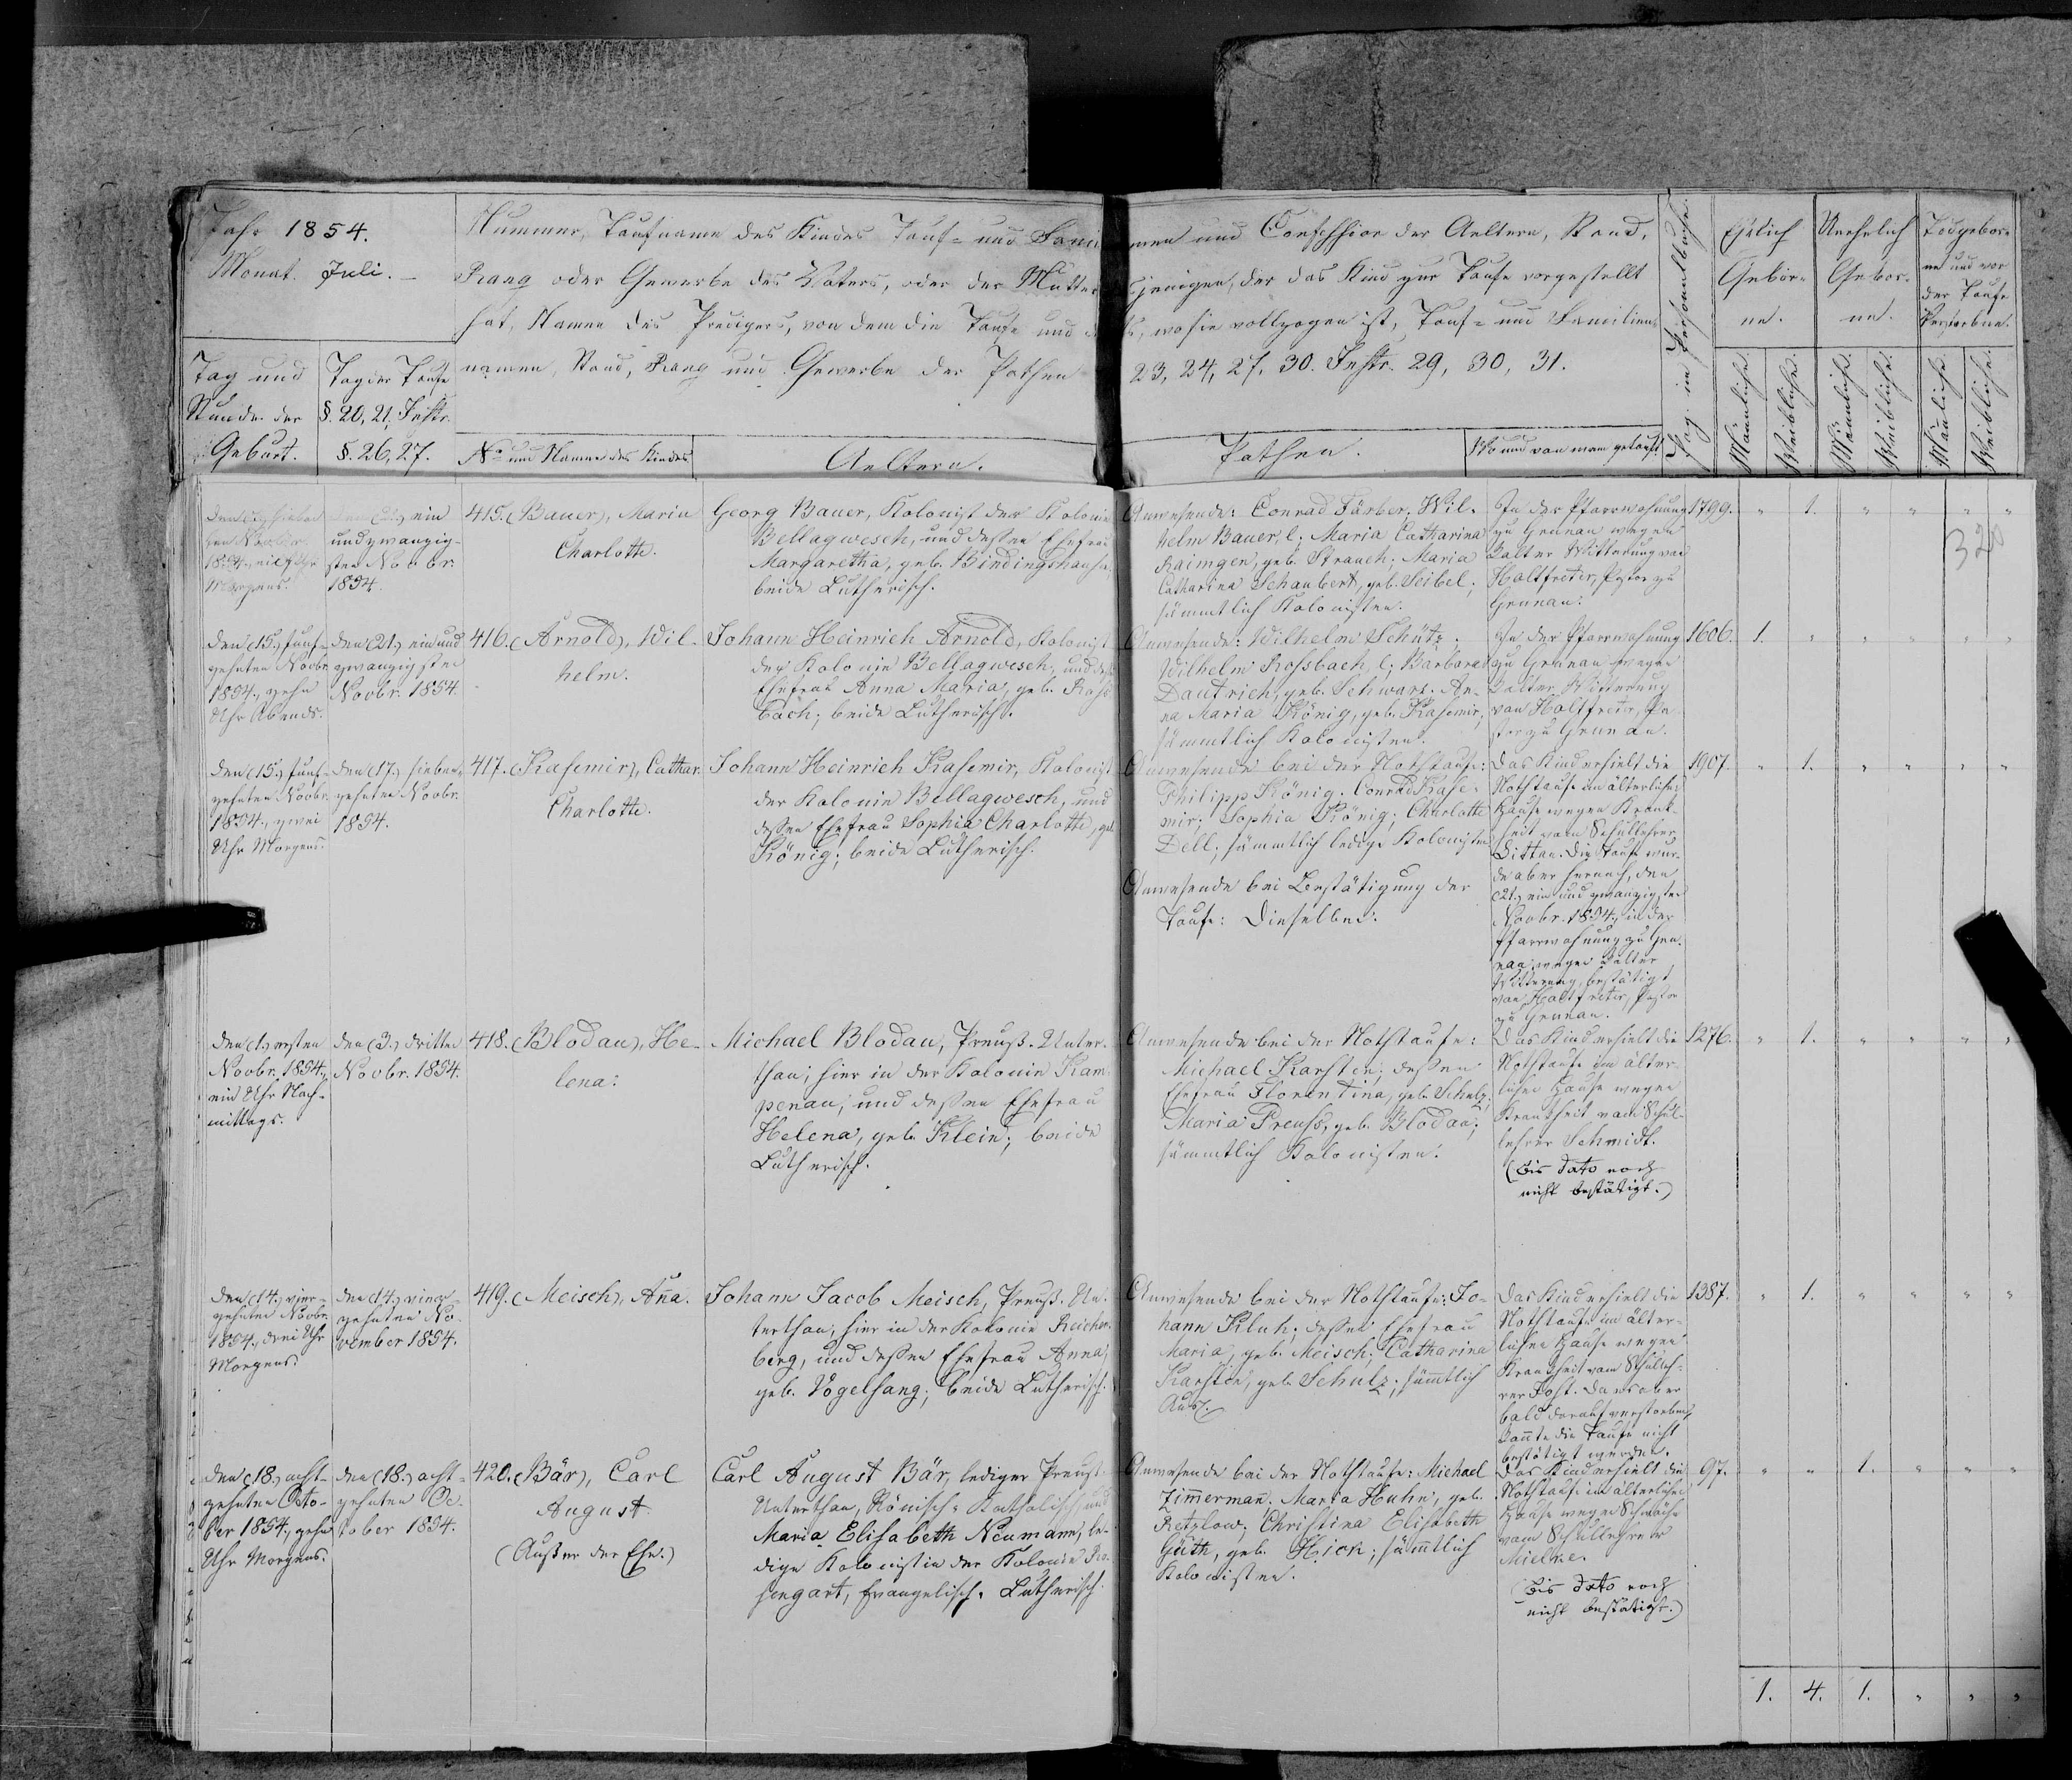 Jahr 1854.
Monat. Juli. –
Tag und
Stunde der
Geburt.
Tag der Taufe
§. 20, 21, Instr.
§. 26, 27.
Nummer, Taufname des Kindes Tauf- und Fami
Rang oder Gewerbe des Vaters, oder der Mutter
hat, Namen des Predigers, von dem die Taufe und
namen, Stand, Rang und Gewerbe der Pathen
No und Namen des Kindes
Aeltern.
men und Confession der Aeltern, Stand,
jenigen, der das Kind zur Taufe vorgestellt
wo sie vollzogen ist, Tauf- und Familien-
23, 24, 27, 30. Instr. 29, 30, 31.
Pathen.
Wo und von wem getauft.
Pag. im Personalbuche.
Ehelich
Gebor-
ne.
Unehelich
Gebor-
ne.
Todgebor-
ne und vor
der Taufe
Verstorbene.
Männliche.
Weibliche.
Männliche.
Weibliche.
Männliche.
Weibliche.
Morgens.
ein
und zwanzig-
sten Novbr.
1854.
415. (Bauer), Maria
Charlotte.
Georg Bauer, Kolonist der Kolonie
Bellagwesch, und dessen Ehefrau
Margaretha, geb. Bindingshausen,
beide Lutherisch.
Anwesende: Conrad Färber. Wil-
helm Bauer, l; Maria Catharina
Raimgen, geb. Strauch; Maria
Catharina Schaubert, geb. Seibel;
sämmtlich Kolonisten.
In der Pfarrwohnung
zu Grunau wegen
kalter Witterung von
Holtfreter, Pastor zu
Grunau.
1799. " 1. " " " "
320
Den (15.) funf-
zehnten Novbr.
1854., zehn
Uhr Abends.
Den (21.) ein und
zwanzigsten
Novbr. 1854.
416. (Arnold), Wil-
helm.
Johann Heinrich Arnold, Kolonist
der Kolonie Bellagwesch, und
Ehefrau Anna Maria, geb. Ross
bach; beide Lutherisch.
Anwesende: Wilhelm Schütz.
Wilhelm Rossbach, l; Barbara
Dautrich, geb. Schwarz. An-
na Maria König, geb. Kasemir;
sämmtlich Kolonisten.
In der Pfarrwohnung
zu Grunau wegen
kalter Witterung
von Holtfreter, Pa-
stor zu Grunau.
1606. 1. " " " " "
Den (15.) funf-
zehnten Novbr.
1854., zwei
Uhr Morgens.
Den (17.) sieben-
zehnten Novbr.
1854.
417. (Kasemir), Cathar.
Charlotte.
Johann Heinrich Kasemir, Kolonist
der Kolonie Bellagwesch, und
dessen Ehefrau Sophia Charlotte, geb.
König; beide Lutherisch.
Anwesende bei der Nothtaufe:
Philipp König. Conrad Kase-
mir; Sophia König; Charlotte
Dell; sämmtlich ledige Kolonisten
Anwesende bei Bestätigung der
Taufe: Dieselben.
Das Kind erhielt die
Nothtaufe im älterlichen
Hause wegen Krank-
heit vom Schullehrer
Die Taufe wur-
de aber hernach, den
(21.) ein und zwanzigsten
Novbr. 1854., in der
Pfarrwohnung zu Gru-
nau, wegen kalter
Witterung, bestätigt
von Holtfreter, Pastor
zu Grunau.
1907. " 1. " " " "
Den (1.) ersten
Novbr. 1854.,
ein Uhr Nach-
mittags.
Den (3.) dritten
Novbr. 1854.
418. (Blodau), He-
lena.
Michael Blodau, Preuß. Unter-
than, hier in der Kolonie Kam-
penau, und dessen Ehefrau
Helena, geb. Klein; beide
Lutherisch.
Anwesende bei der Nothtaufe:
Michael Karsten; dessen
Ehefrau Florentina, geb. Schulz;
Maria Preuss, geb. Blodau;
sämmtlich Kolonisten.
Das Kind erhielt die
Nothtaufe im älter-
lichen Hause wegen
Krankheit vom Schul-
lehrer Schmidt.
(Bis dato noch
nicht bestätigt.)
1276. " 1. " " " "
Den (14.) vier-
zehnten Novbr.
1854., drei Uhr
Morgens.
Den (14.) vier-
zehnten No-
vember 1854.
419. (Meisch), Anna.
Johann Jacob Meisch, Preuß. Un-
terthan, hier in der Kolonie Reichen-
berg, und dessen Ehefrau Anna,
geb. Vogelsang; beide Lutherisch.
Anwesende bei der Nothtaufe: Jo-
hann Kluh; dessen Ehefrau
Maria, geb. Meisch; Catharina
Karsten, geb. Schulz; sämtlich
Das Kind erhielt die
Nothtaufe im älter-
lichen Hause wegen
Krankheit vom Schulleh-
rer Jost. Da es aber
bald darauf verstorben,
konnte die Taufe nicht
bestätigt werden.
1387. " 1. " " " "
Den (18.) acht-
zehnten Octo-
ber 1854., zehn
Uhr Morgens.
Den (18.) acht-
zehnten Oc-
tober 1854.
420. (Bär), Carl
August.
(Außer der Ehe.)
Carl August Bär, lediger Preuß.
Unterthan, Römisch-Katholisch, und
Maria Elisabeth Neumann, le-
dige Kolonistin der Kolonie Ro-
sengart, Evangelisch-Lutherisch.
Anwesende bei der Nothtaufe: Michael
Zimmerman. Maria Huhn, geb.
Retzlow; Christina Elisabeth
Güth, geb. Hick; sämtlich
Kolonisten.
Das Kind erhielt die
Nothtaufe im älterlichen
Hause wegen Schwäche
vom Schullehrer
Mielke.
(Bis dato noch
nicht bestätigt.)
97. " " 1. " " "
1. 4. 1. " " "